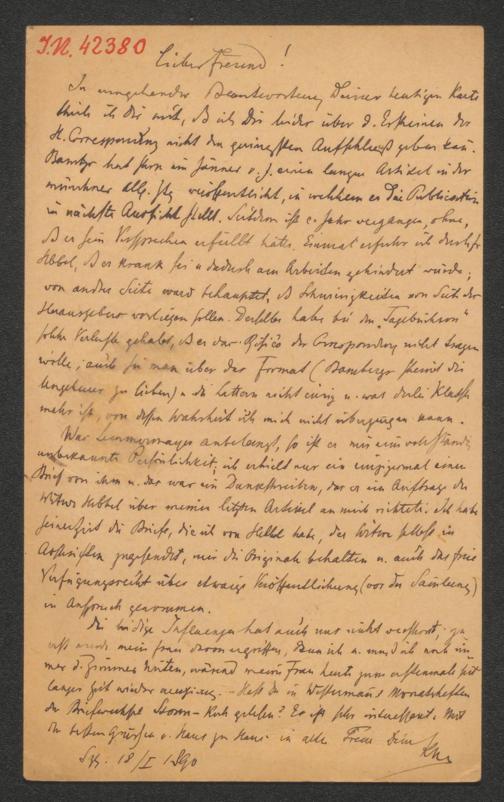 I.N. 42380
Lieber Freund!
In umgehender Beantwortung Deiner heutigen Karte
theile ich Dir mit, dß ich Dir leider über d. Erscheinen der
H. Correspondenz nicht den geringsten Aufschluß geben kan.
Bamberg hat schon im Jänner v. J. einen langen Artikel in der
münchner allg. Ztg veröffentlicht, in welchem er die Publication
in nächste Aussicht stellt. Seitdem ist e. Jahr vergangen, ohne,
dß er sein Versprechen erfüllt hätte. Einmal erfuhr ich durch Fr
Hebbel, dß er krank sei u dadurch am Arbeiten gehindert würde;
von andrer Seite ward behauptet, dß Schwierigkeiten von Seite des
Herausgebers vorliegen sollen. Derselbe habe bei den „Tagebüchern"
solche Verluste gehabt, dß er das Risico der Correspondenz nicht tragen
wolle; auch sei man über das Format (Bamberg scheint die
Ungeheuer zu lieben) u. die Lettern nicht einig u. was derlei Klatsch
mehr ist, von dessen Wahrheit ich mich nicht überzeugen kann.
Was Lemmermayer anbelangt, so ist er mir eine vollständig
unbekannte Persönlichkeit; ich erhielt nur ein einzigesmal einen
Brief von ihm u. das war ein Dankschreiben, das er im Auftrage der
Witwe Hebbel über meinen letzten Artikel an mich richtete. Ich habe
seinerzeit die Briefe, die ich von Hebbel habe, der Witwe selbst in
Abschriften zugesendet, mir die Originale behalten u. auch das freie
Verfügungsrecht über etwaige Veröffentlichung (vor der Sammlung)
in Anspruch genommen.
Die leidige Influenza hat auch uns nicht verschont; zu
erst wurde meine Frau davon ergriffen, dann ich u. muß ich noch im
mer d. Zimmer hüten, während meine Frau heute zum erstenmale seit
langer Zeit wieder ausging. – Hast du in Westermanns Monatsheften
den Briefwechsel Storm – Kuh gelesen? Er ist sehr interessant. Mit
den besten Grüßen v. Haus zu Haus in alter Treue Dein
18/I 1890